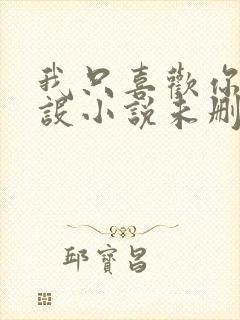 我只喜歡你
設小說未刪
邱寶昌